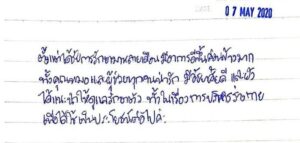 07 MAY 2020
ตั้งแต่ได้รับการรักษามาหลายเดือน มีอาการดีขึ้นค่อนข้างมาก
ทั้งคุณหมอและผู้ช่วยทุกคนน่ารัก มีอัธยาศัยดี และยัง
ได้แนะนำให้ดูแลรักษาตัว ทั้งในเรื่องการบริหารร่างกาย
เพื่อใช้เป็นประโยชน์ต่อไปค่ะ